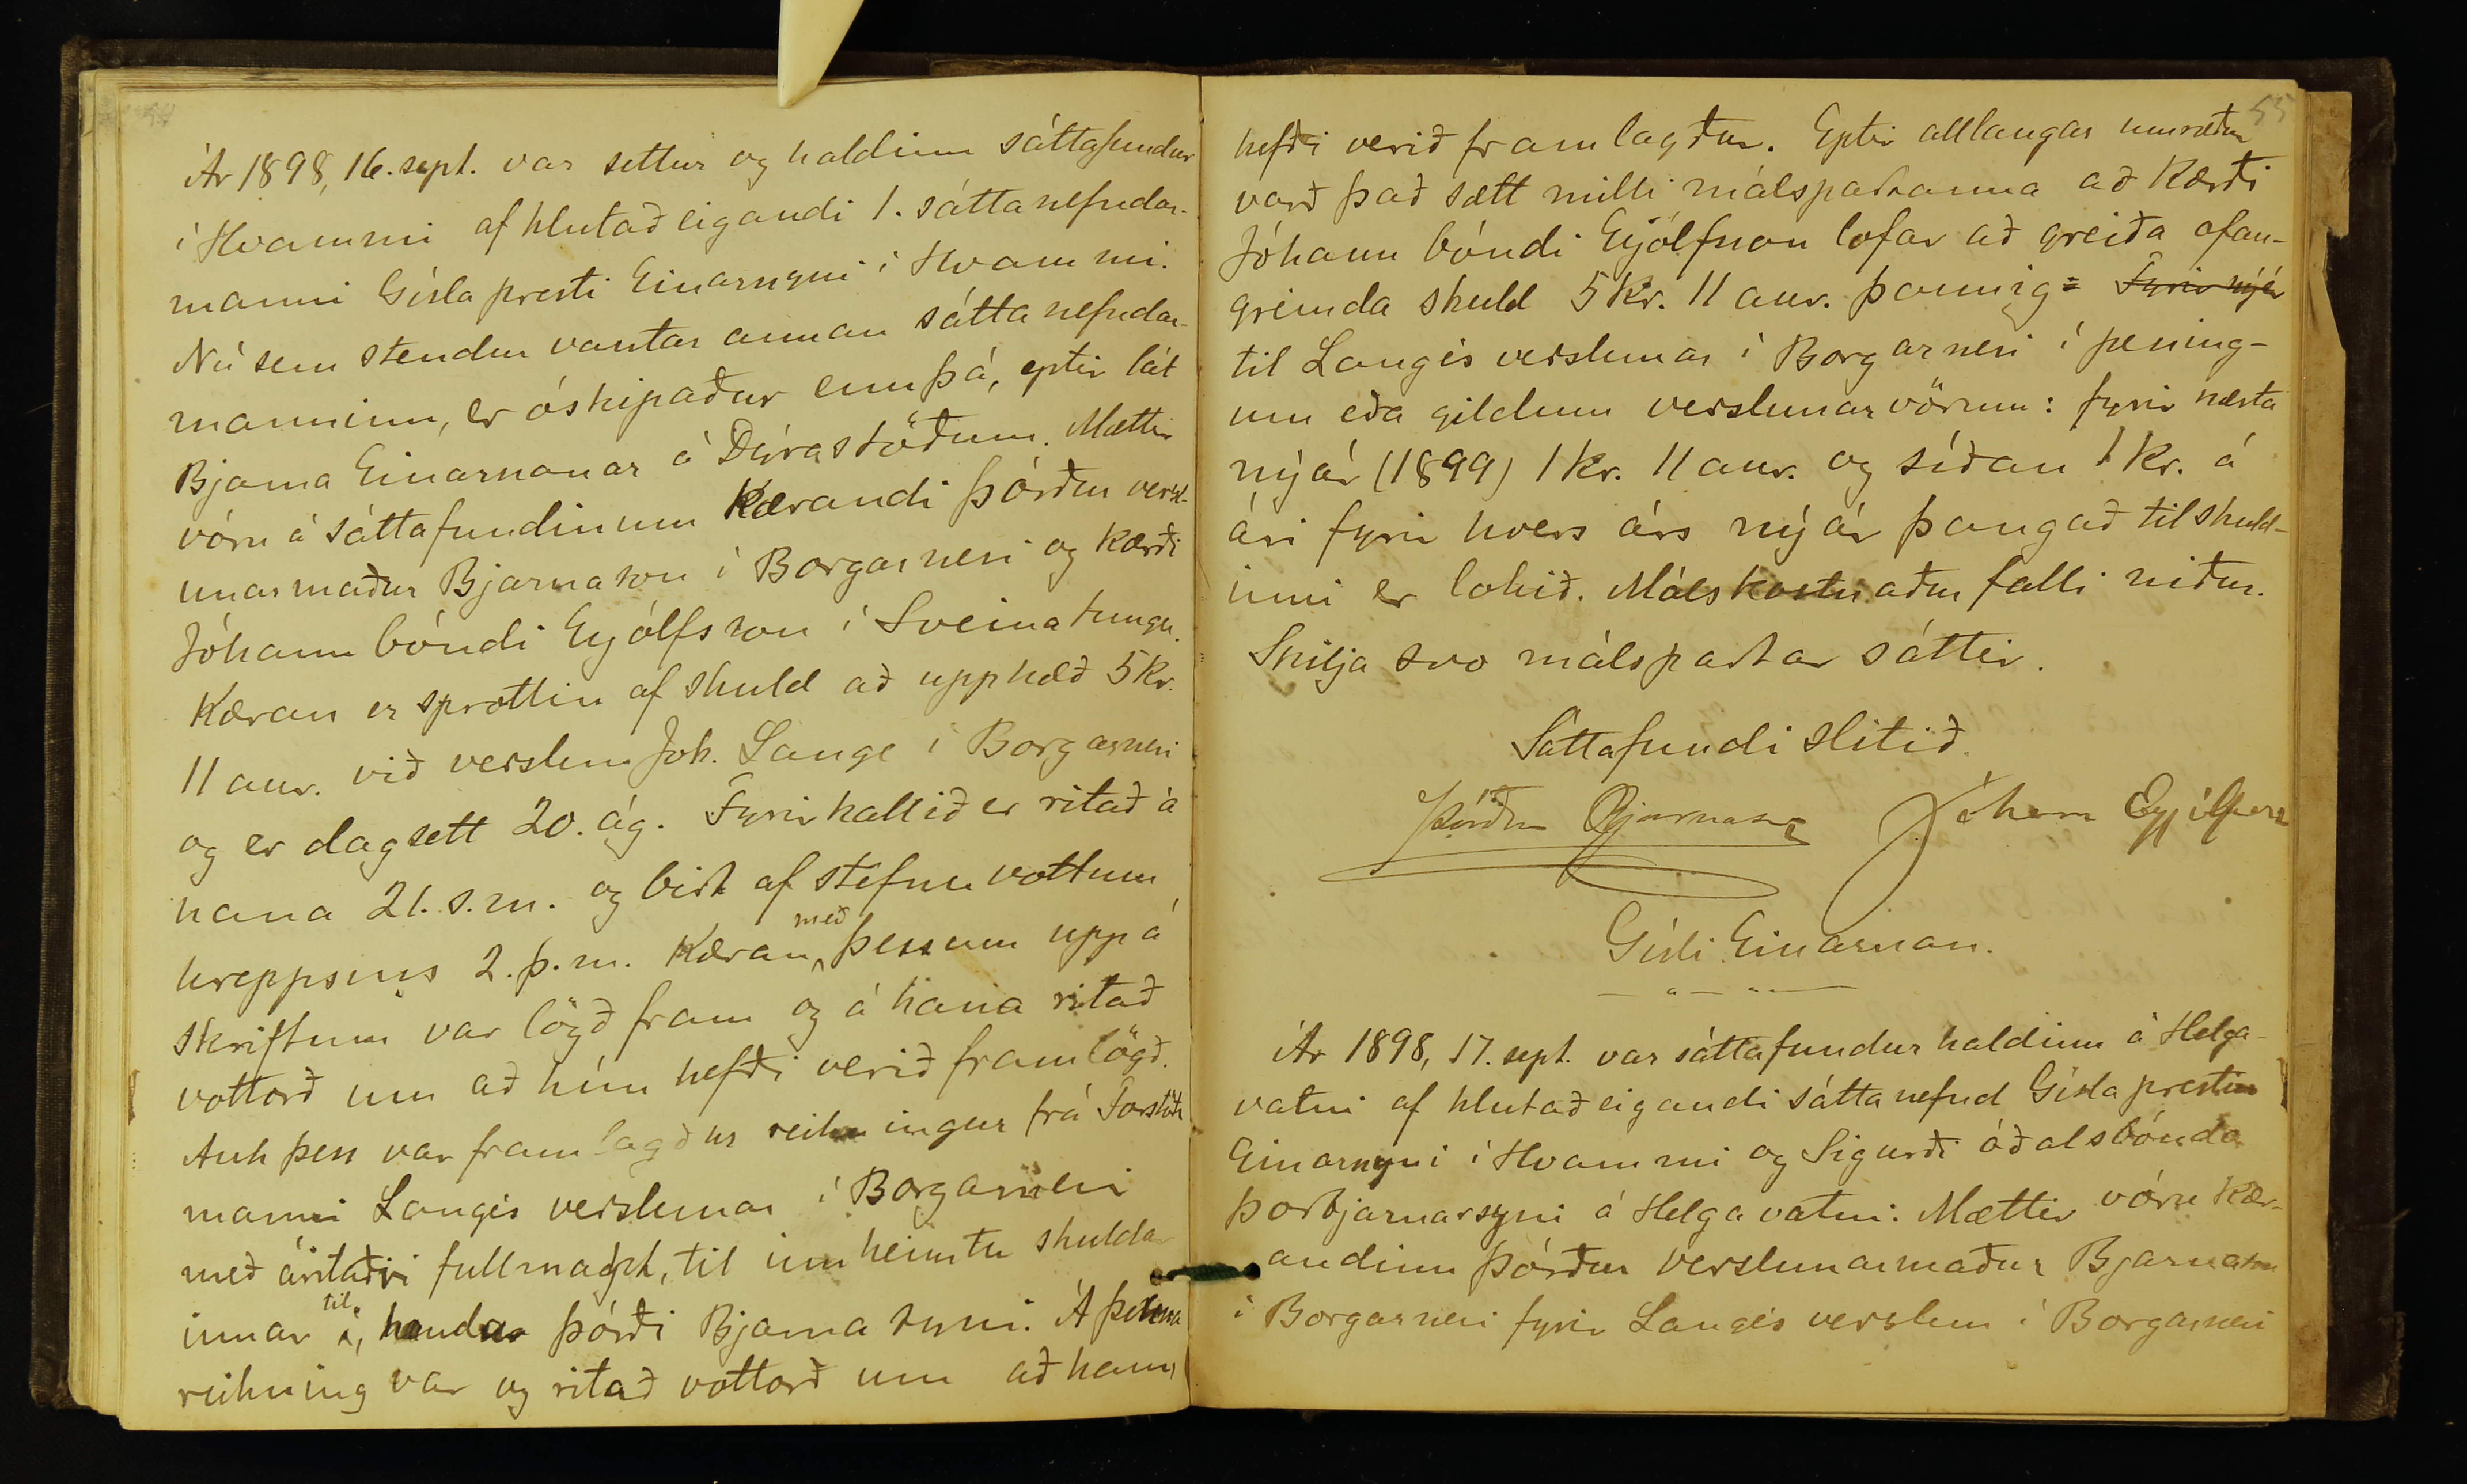 54
Ár 1898, 16. sept. var settur og haldinn sáttafundur
í Hvammi af hlutaðeigandi 1. sáttanefndar-
manni Gísla presti Einarssyni í Hvammi.
Nú sem stendur vantar annan sáttanefndar-
manninn, er óskipaður ennþá, eptir lát
Bjarna Einarssonar á Dýrastöðum. Mættir
vóru á sáttafundinum Kærandi Þórður versl-
unarmaður Bjarnason í Borgarnesi og kærði
Jóhann bóndi Eyjólfsson í Sveinatungu.
Kæran er sprottin af skuld að upphæð 5 kr.
11 aur. við verslun Joh. Lange í Borgarnesi
og er dagsett 20. ág. Fyrirkallið er ritað á
hana 21. s. m. og birt af stefnuvottum
hreppsins 2. þ. m. Kæran með þessum uppá
skriftum var lögð fram og á hana ritað
vottorð um að hún hefði verið framlögð.
Auk þess var framlagður reikningur frá Forstöðu
manni Langes verslunar í Borgarnesi
með áritaðri fullmagt, til innheimtu skuldar
innar til handa Þórði Bjarnasyni. Á þenna
reikning var og ritað vottorð um að hann
55
hefði verið framlagður. Eptir alllangar umræður
varð það sætt milli málspartanna að Kærði
Jóhann bóndi Eyjólfsson lofar að greiða ofan-
greinda skuld 5 kr. 11 aur. þannig: Fyrir nýár
til Langes verslunar í Borgarnesi í pening-
um eða gildum verslunarvörum: fyrir næsta
nýár (1899) 1 kr. 11 aur. og síðan 1 kr. á
ári fyrir hvers árs nýár þangað til skuld-
inni er lokið. Málskostnaður falli niður.
Skilja svo málspartar sáttir.
Sáttafundi slitið.
Þórður Bjarnason Jóhann Eyjólfsson
Gísli Einarsson.
Ár 1898, 17. sept. var sáttafundur haldinn á Helga-
vatni af hlutaðeigandi sáttanefnd Gísla presti
Einarssyni í Hvammi og Sigurði óðalsbónda
Þorbjarnarsyni á Helgavatni. Mættir vóru Kær-
andinn Þórður verslunarmaður Bjarnason
í Borgarnesi fyrir Langes verslun í Borgarnesi